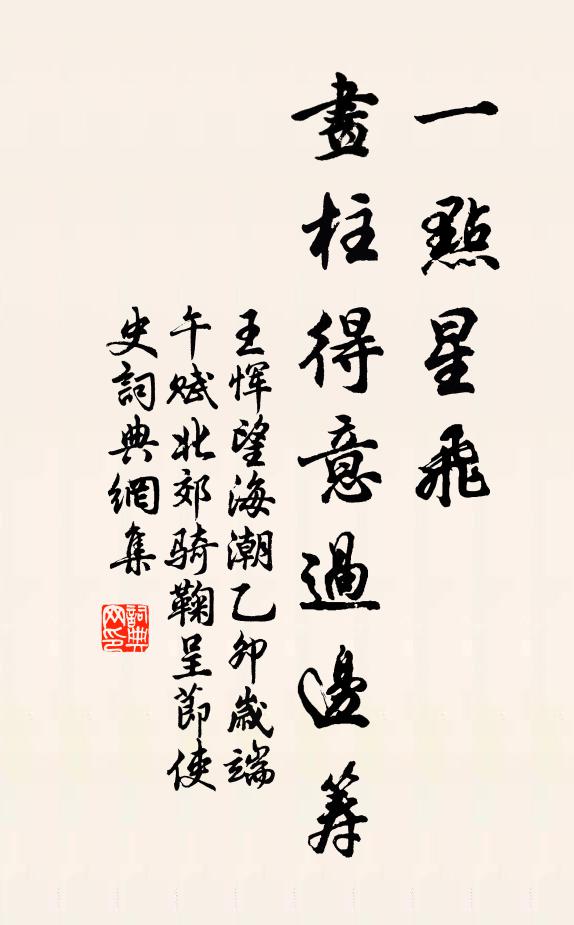 一點星飛
畫柱得意過邊筭
王惲望海潮乙卯歲端
午賦北郊騎鞠呈節使
史詞典網集
詞典
网印